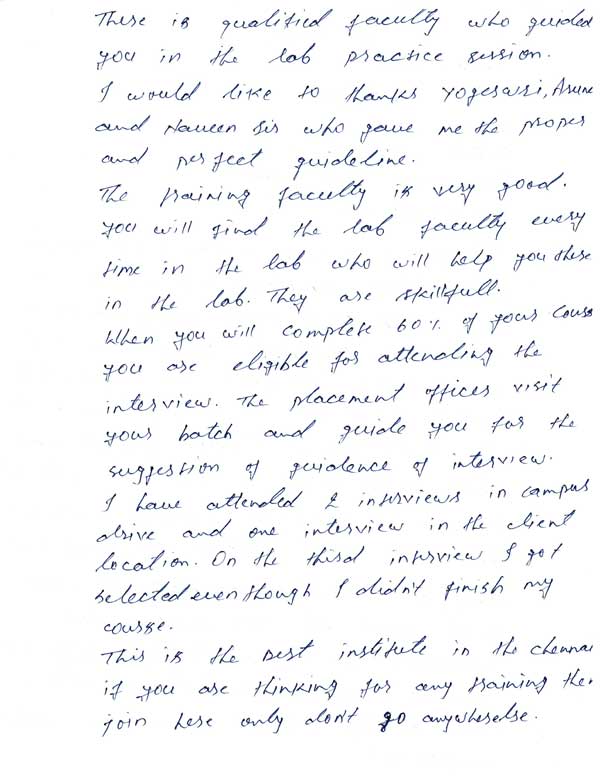 There is qualified faculty who guided
you in the lab practice session.
I would like to thanks Yogeswari, Arun
and Naveen Sir who gave me the proper
and perfect guideline.
The training faculty is very good.
You will find the lab faculty every
time in the lab who will help you there
in the lab. They are skillfull.
When you will complete 60% of your Course
you are eligible for attending the
interview. The placement officer visit
your batch and guide you for the
suggestion of guidence of interview.
I have attended 2 interviews in campus
drive and one interview in the client
location. On the third interview I got
selected even though I didn't finish my
course.
This is the best institute in the chennai
if you are thinking for any training then
join here only don't go anywhereelse.